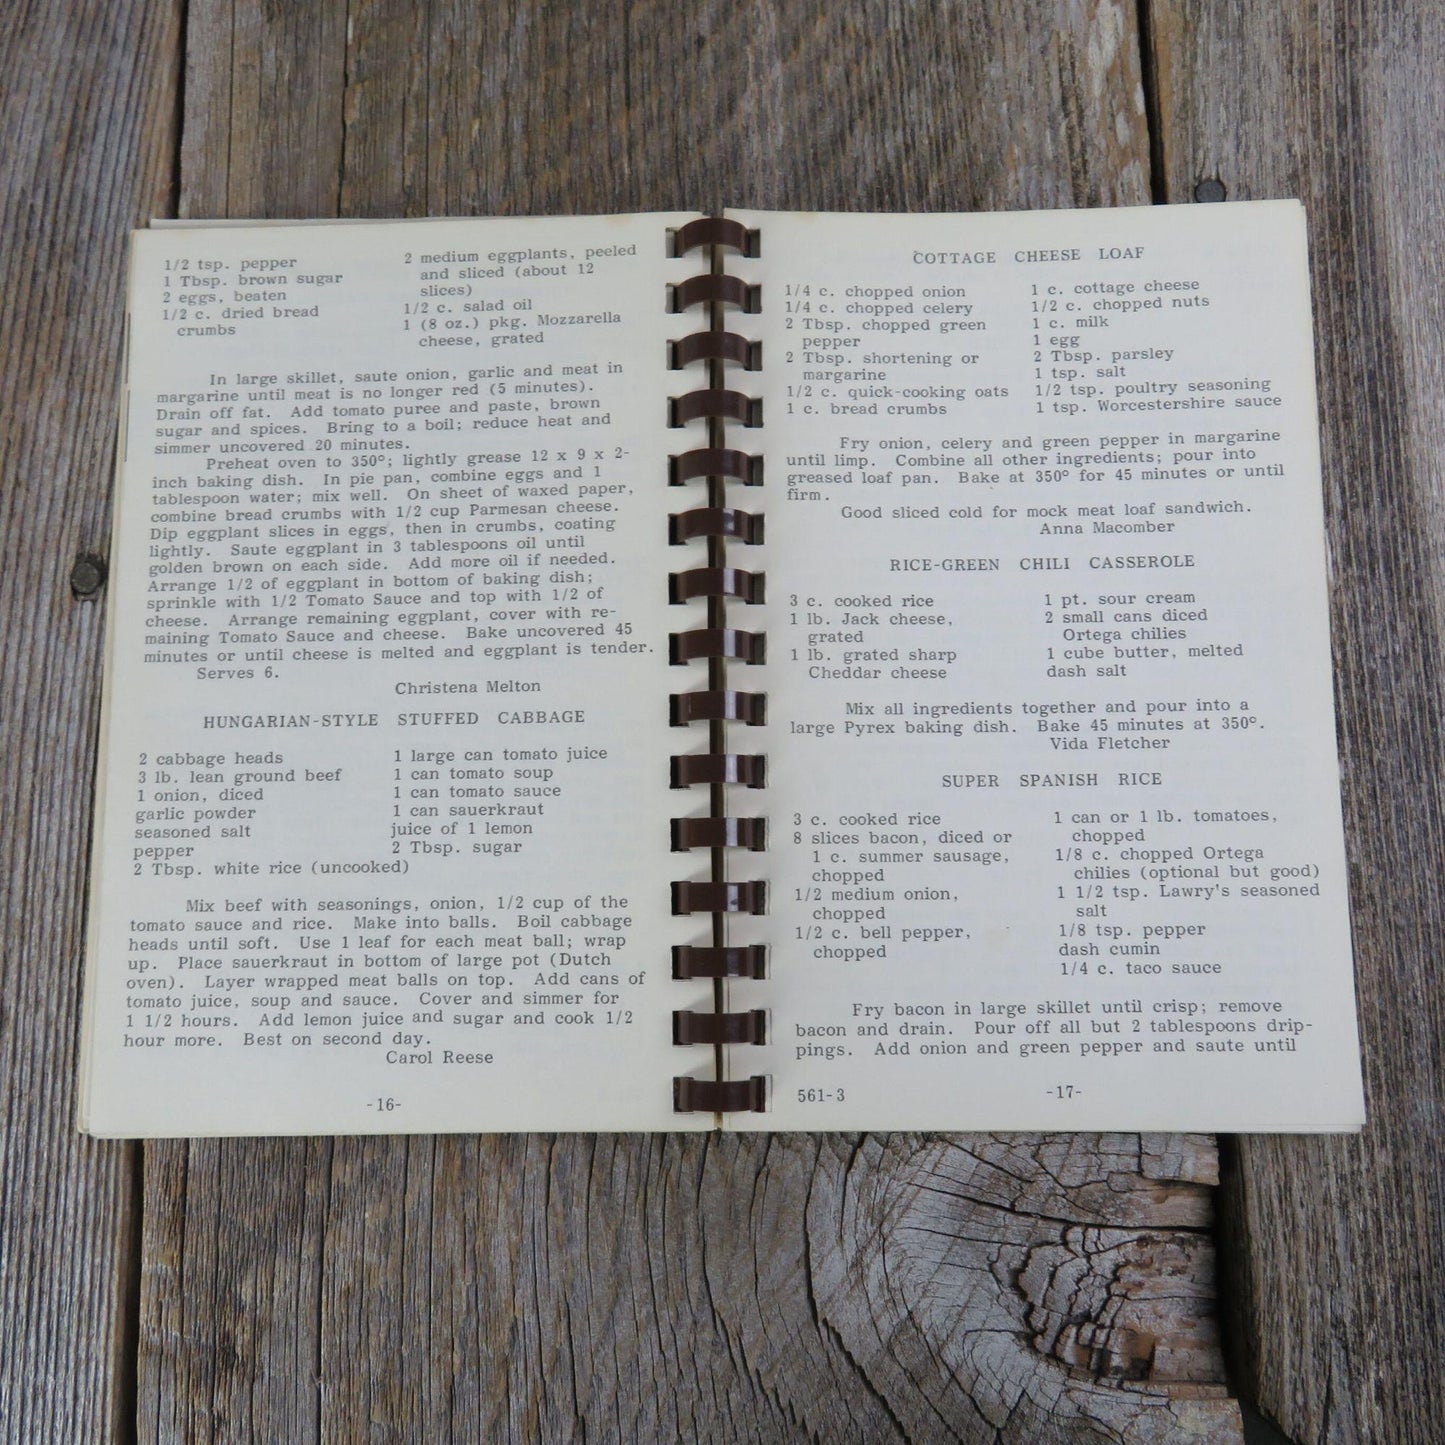 1/2 tsp. pepper
1 Tbsp. brown sugar
2 eggs, beaten
1/2 c. dried bread
crumbs
2 medium eggplants, peeled
and sliced (about 12
slices)
1/2 c. salad oil
1 (8 oz.) pkg. Mozzarella
cheese, grated
In large skillet, saute onion, garlic and meat in
margarine until meat is no longer red (5 minutes).
Drain off fat. Add tomato puree and paste, brown
sugar and spices. Bring to a boil; reduce heat and
simmer uncovered 20 minutes.
Preheat oven to 350°; lightly grease 12 x 9 x 2-
inch baking dish. In pie pan, combine eggs and 1
tablespoon water; mix well. On sheet of waxed paper,
combine bread crumbs with 1/2 cup Parmesan cheese.
Dip eggplant slices in eggs, then in crumbs, coating
lightly. Saute eggplant in 3 tablespoons oil until
golden brown on each side. Add more oil if needed.
Arrange 1/2 of eggplant in bottom of baking dish;
sprinkle with 1/2 Tomato Sauce and top with 1/2 of
cheese. Arrange remaining eggplant, cover with re-
maining Tomato Sauce and cheese. Bake uncovered 45
minutes or until cheese is melted and eggplant is tender.
Serves 6.
Christena Melton
HUNGARIAN-STYLE STUFFED CABBAGE
2 cabbage heads
3 lb. lean ground beef
1 onion, diced
garlic powder
seasoned salt
pepper
2 Tbsp. white rice (uncooked)
1 large can tomato juice
1 can tomato soup
1 can tomato sauce
1 can sauerkraut
juice of 1 lemon
2 Tbsp. sugar
Mix beef with seasonings, onion, 1/2 cup of the
tomato sauce and rice. Make into balls. Boil cabbage
heads until soft. Use 1 leaf for each meat ball; wrap
up. Place sauerkraut in bottom of large pot (Dutch
oven). Layer wrapped meat balls on top. Add cans of
tomato juice, soup and sauce. Cover and simmer for
1 1/2 hours. Add lemon juice and sugar and cook 1/2
hour more. Best on second day.
Carol Reese
-16-
COTTAGE CHEESE LOAF
1/4 c. chopped onion
1/4 c. chopped celery
2 Tbsp. chopped green
pepper
2 Tbsp. shortening or
margarine
1/2 c. quick-cooking oats
1 c. bread crumbs
1 c. cottage cheese
1/2 c. chopped nuts
1 c. milk
1 egg
2 Tbsp. parsley
1 tsp. salt
1/2 tsp. poultry seasoning
1 tsp. Worcestershire sauce
Fry onion, celery and green pepper in margarine
until limp. Combine all other ingredients; pour into
greased loaf pan. Bake at 350° for 45 minutes or until
firm.
Good sliced cold for mock meat loaf sandwich.
Anna Macomber
RICE-GREEN CHILI CASSEROLE
3 c. cooked rice
1 lb. Jack cheese,
grated
1 lb. grated sharp
Cheddar cheese
1 pt. sour cream
2 small cans diced
Ortega chilies
1 cube butter, melted
dash salt
Mix all ingredients together and pour into a
large Pyrex baking dish. Bake 45 minutes at 350°.
Vida Fletcher
SUPER SPANISH RICE
3 c. cooked rice
8 slices bacon, diced or
1 c. summer sausage,
chopped
1/2 medium onion,
chopped
1/2 c. bell pepper,
chopped
1 can or 1 lb. tomatoes,
chopped
1/8 c. chopped Ortega
chilies (optional but good)
1 1/2 tsp. Lawry's seasoned
salt
1/8 tsp. pepper
dash cumin
1/4 c. taco sauce
Fry bacon in large skillet until crisp; remove
bacon and drain. Pour off all but 2 tablespoons drip-
pings. Add onion and green pepper and saute until
561-3
-17-